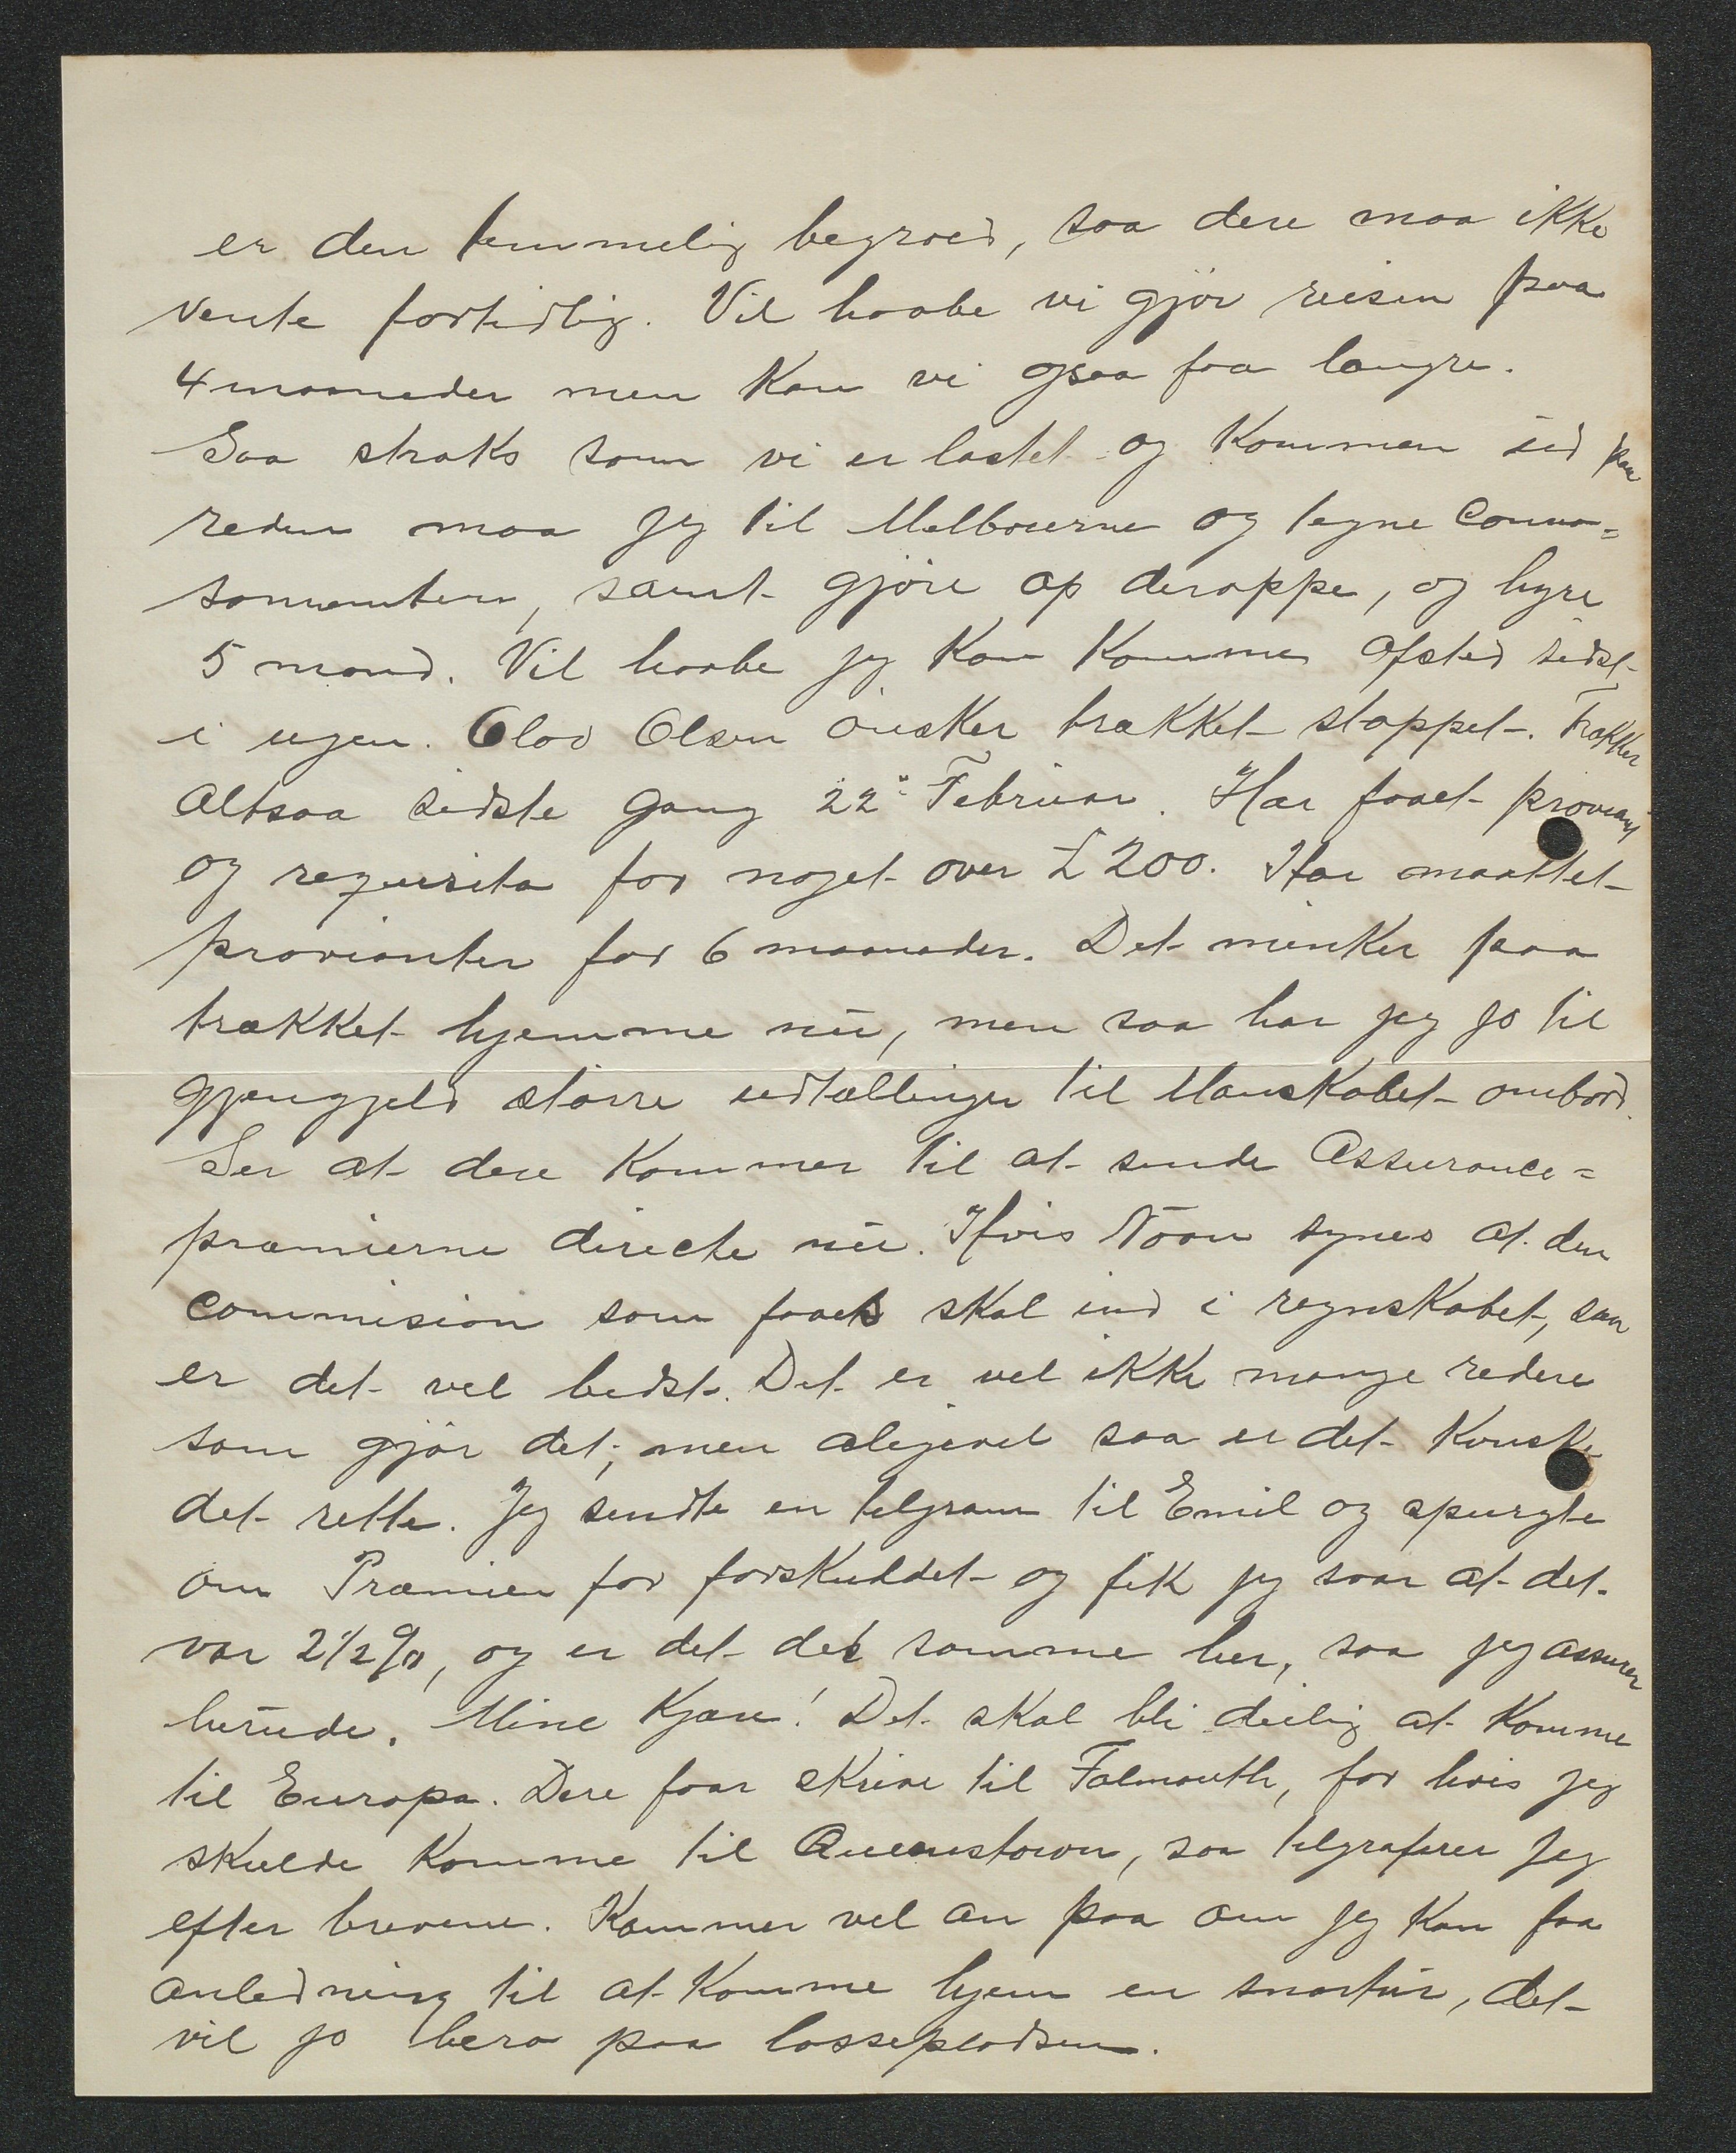 er den temmelig begroed, saa dere maa ikke
vente fortidlig. Vil haabe vi gjör reisen paa
4 maaneder men kan vi ogsaa faa længre.
Saa straks som vi er lastet og kommen ud paa
reden maa jeg til Melbourne og tegne Conno=
sementern, samt gjöre op deroppe, og hyre
5 mand. Vil haabe jeg kan komme afsted sidst
i ugen. Olav Olsen önsker trækket stoppet. Trækker
altsaa sidste gang 22" Februar. Har faaet proviant
og requisita for noget over £ 200. Har maattet
provianter for 6 maaneder. Det minker paa
trækket hjemme nu, men saa har jeg jo til
gjengjeld større udtællinger til Manskabet ombord.
Ser at dere kommer til at sende Assurance=
præmierne directe nu. Hvis Noen synes at den
Commision som faaes skal ind i regnskabet, saa
er det vel bedst. Det er vel ikke mange redere
som gjör det; men aligevel saa er det kanske
det rette. Jeg sendte en telgram til Emil og spurgte
om Præmien for forskuddet og fik jeg svar at det
var 2 1/2 %, og er det det samme her, saa jeg assurer
herude. Mine Kjære! Det skal bli deilig at komme
til Europa. Dere faar skrive til Falmouth, for hvis jeg
skulde komme til Queenstown, saa telgraferer jeg
efter brevene. Kommer vel an paa om jeg kan faa
anledning til at komme hjem en snartur, det
vil jo bero paa lossepladsen.